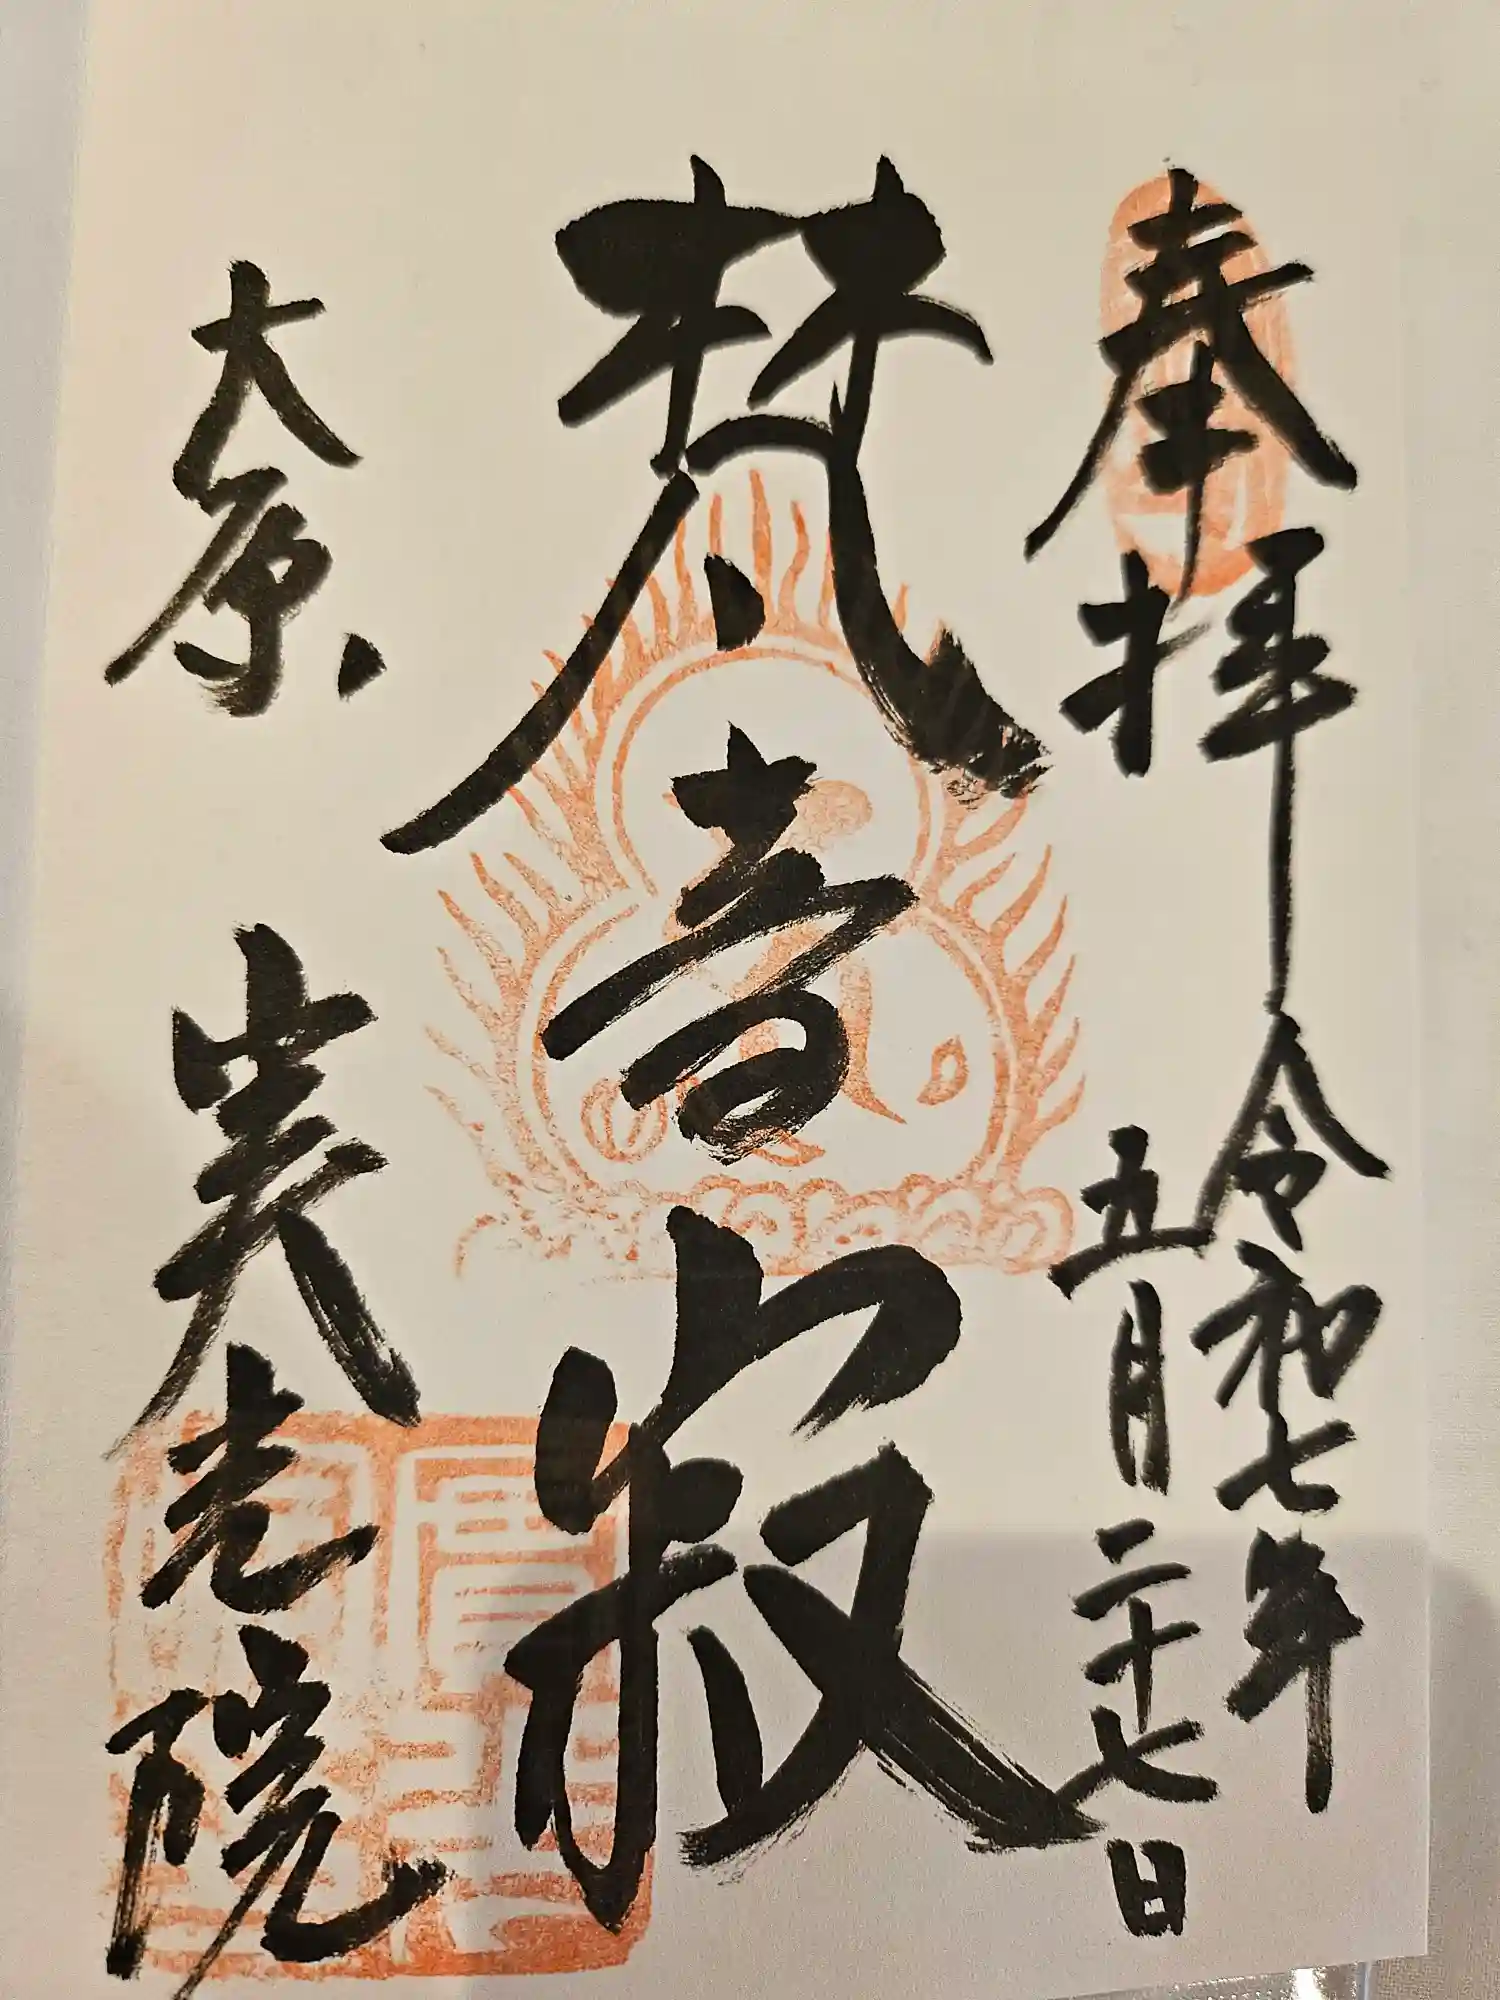 奉拝 令和七年
五月二十七日
梵音寂
大原 実光院